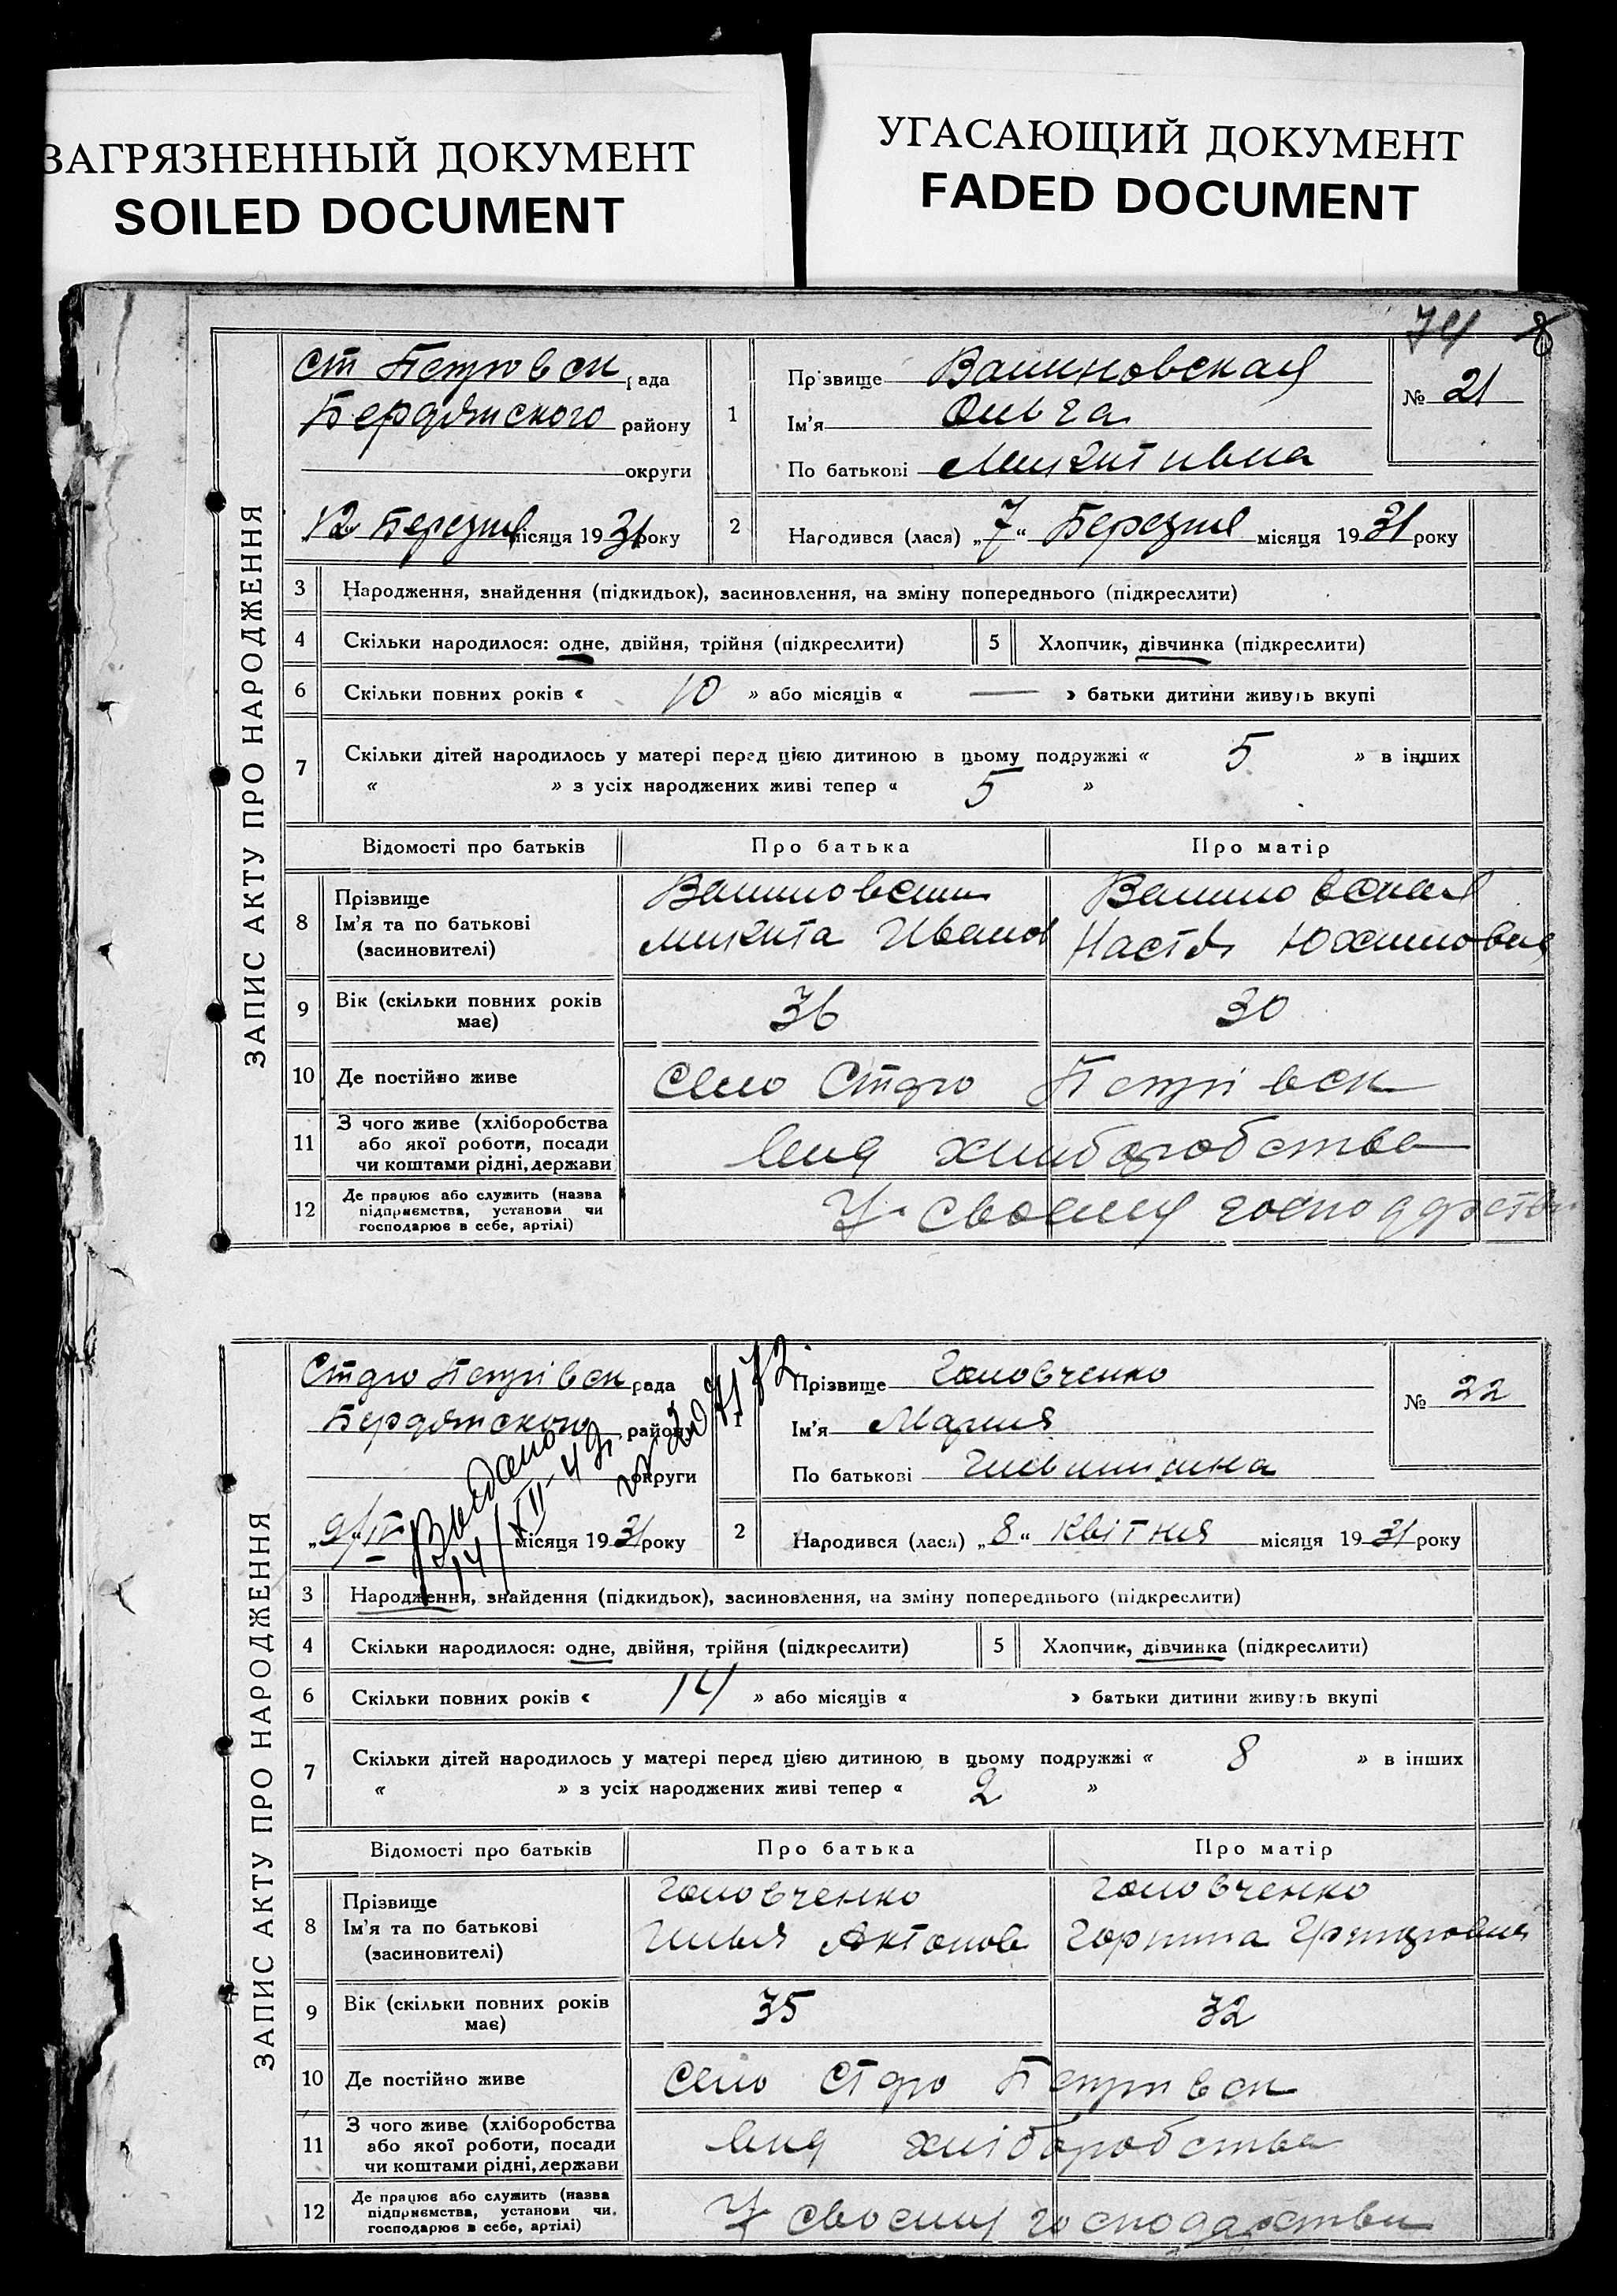 ЗАГРЯЗНЕННЫЙ ДОКУМЕНТ
SOILED DOCUMENT
УГАСАЮЩИЙ ДОКУМЕНТ
FADED DOCUMENT
74
ЗАПИС АКТУ ПРО НАРОДЖЕННЯ
ст Петровск рада
Бердянського району
округи
12 Березня місяця 1931 року
1 Прізвище Валиновская
Ім'я Ольга
По батькові Микитивна
№ 21
2 Народився (лася) „7“ Березня місяця 1931 року
3 Народження, знайдення (підкидьок), засиновлення, на зміну попереднього (підкреслити)
4 Скільки народилося: одне, двійня, трійня (підкреслити) 5 Хлопчик, дівчинка (підкреслити)
6 Скільки повних років « 10 » або місяців « — » батьки дитини живуть вкупі
7 Скільки дітей народилось у матері перед цією дитиною в цьому подружжі « 5 » в інших
« » з усіх народжених живі тепер « 5 »
Відомості про батьків Про батька Про матір
8 Прізвище
Ім'я та по батькові
(засиновителі)
Микита Иванов
Настя Юхимовна
9 Вік (скільки повних років
має) 36 30
10 Де постійно живе Село Старо Петрівск
11 З чого живе (хліборобства
або якої роботи, посади
чи коштами рідні, держави
вид хлиборобства
12 Де працює або служить (назва
підприємства, установи чи
господарює в себе, артілі)
У своему господарстви
ЗАПИС АКТУ ПРО НАРОДЖЕННЯ
Старо Петрівск рада
Бердянського району
округи
„9/IV місяця 1931 року
Выдано
14/XII-49
1 Прізвище Головченко
Ім'я Мария
По батькові Ильинишна
№ 22
2 Народився (лася) „8“ Квітня місяця 1931 року
3 Народження, знайдення (підкидьок), засиновлення, на зміну попереднього (підкреслити)
4 Скільки народилося: одне, двійня, трійня (підкреслити) 5 Хлопчик, дівчинка (підкреслити)
6 Скільки повних років « 14 » або місяців « » батьки дитини живуть вкупі
7 Скільки дітей народилось у матері перед цією дитиною в цьому подружжі « 8 » в інших
« » з усіх народжених живі тепер « 2 »
Відомості про батьків Про батька Про матір
8 Прізвище
Ім'я та по батькові
(засиновителі)
Головченко
Илья Антонов
Головченко
Горпина
9 Вік (скільки повних років
має) 35 32
10 Де постійно живе Село Старо Петрівск
11 З чого живе (хліборобства
або якої роботи, посади
чи коштами рідні, держави
вид хліборобства
12 Де працює або служить (назва
підприємства, установи чи
господарює в себе, артілі)
У своему господарстви